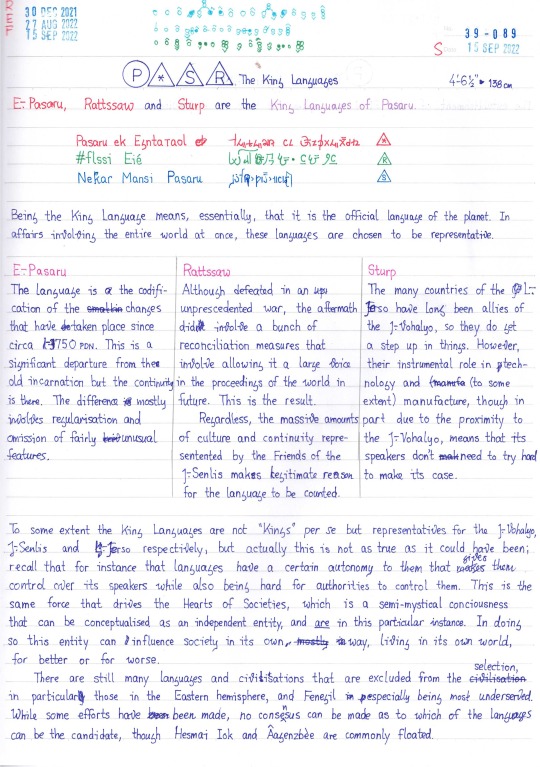 REF
30 DEC 2021
27 AUG 2022
15 SEP 2022
39-089
S 15 SEP 2022
P * S R The King Languages
4'-6½" ► 138 cm
E-Pasaru, Rattssaw and Sturp are the King Languages of Pasaru.
Pasaru ek
#flssi Eié
Nekar Mansi Pasaru
Being the King Language means, essentially, that it is the official language of the planet. In
affairs involving the entire world at once, these languages are chosen to be representative.
E-Pasaru
The language is a the codifi-
cation of the changes
that have taken place since
circa 1750 PDN. This is a
significant departure from the
old incarnation but the continuity
is there. The difference is mostly
involves regularisation and
omission of fairly unusual
features.
Rattssaw
Although defeated in an
unprecedented war, the aftermath
did involve a bunch of
reconciliation measures that
involve allowing it a large voice
in the proceedings of the world in
future. This is the result.
Regardless, the massive amounts
of culture and continuity repre-
sented by the Friends of the
J-Senlis makes legitimate reason
for the language to be counted.
Sturp
The many countries of the L-
Jerso have long been allies of
the J-Vohalyo, so they do get
a step up in things. However,
their instrumental role in tech-
nology and (to some
extent) manufacture, though in
part due to the proximity to
the J-Vohalyo, means that its
speakers don't need to try hard
to make its case.
To some extent the King Languages are not "Kings" per se but representatives for the J-Vohalyo,
J-Senlis and L-Jerso respectively, but actually this is not as true as it could have been;
recall that for instance that languages have a certain autonomy to them that gives them
control over its speakers while also being hard for authorities to control them. This is the
same force that drives the Hearts of Societies, which is a semi-mystical conciousness
that can be conceptualised as an independent entity, and are in this particular instance. In doing
so this entity can influence society in its own way, living in its own world,
for better or for worse.
There are still many languages and civilisations that are excluded from the selection,
in particular those in the Eastern hemisphere, and Fenegil especially being most underserved.
While some efforts have been made, no consensus can be made as to which of the languages
can be the candidate, though Hesmai Iok and Âagenzbèe are commonly floated.